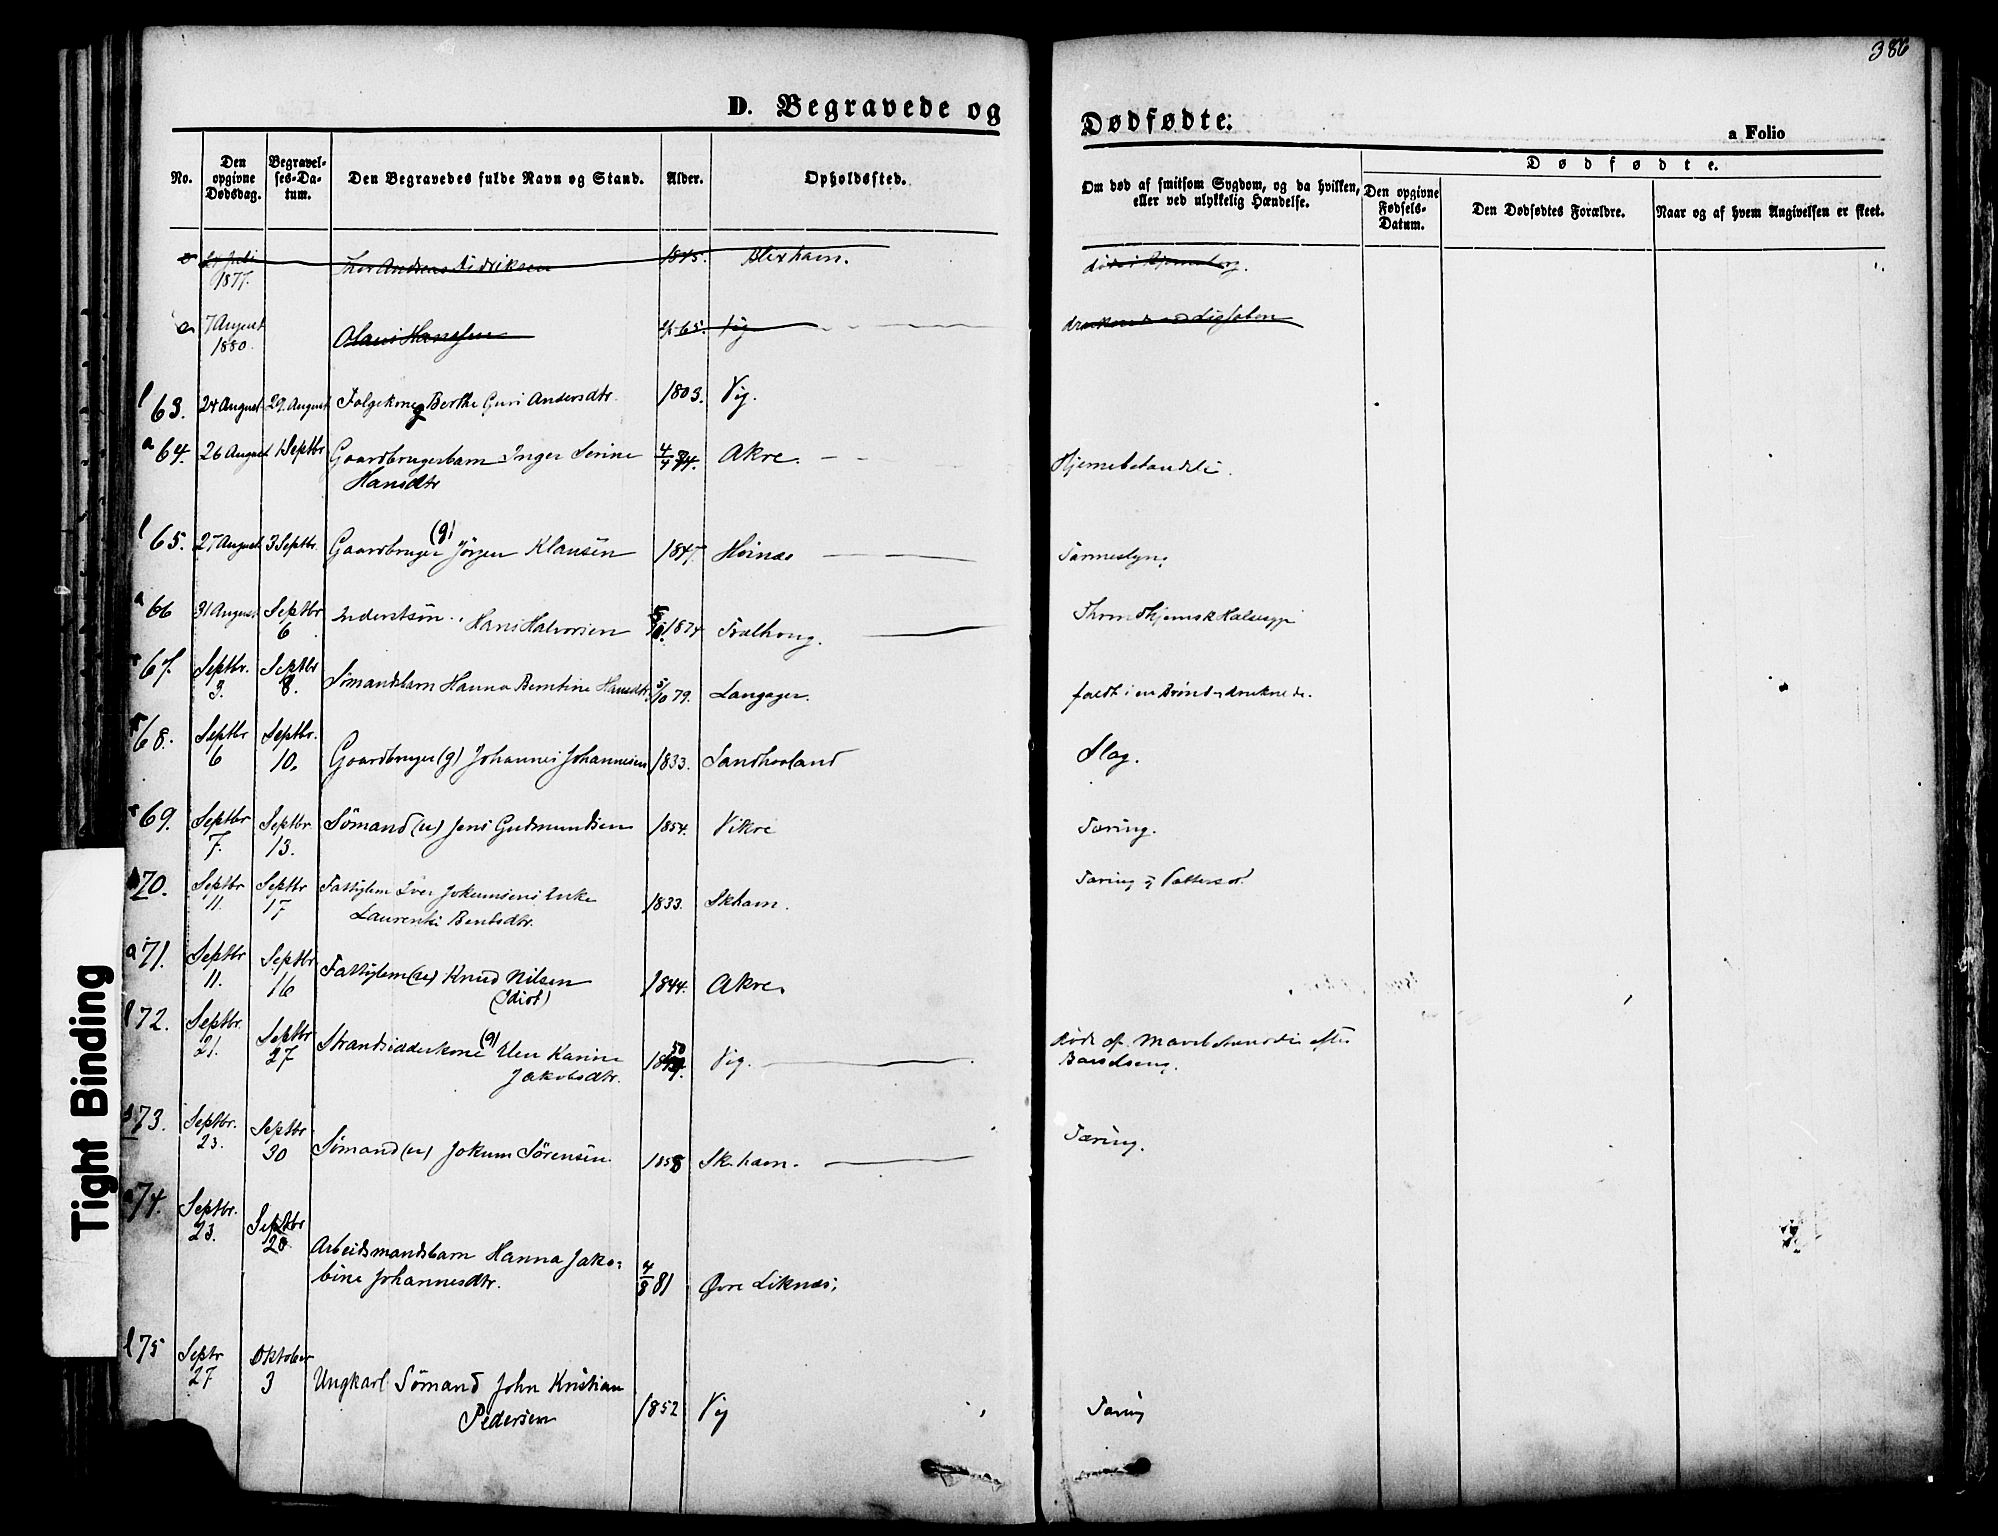 386
D. Begravede og Dødfødte.
a Folio
No.
Den opgivne Dødsdag.
Begravelses-Datum.
Den Begravedes fulde Navn og Stand.
Alder.
Opholdssted.
Om død af smitsom Sygdom, og da hvilken, eller ved ulykkelig Hændelse.
Dødfødte.
Den opgivne Fødsels-Datum.
Den Dødfødtes Forældre.
Naar og af hvem Angivelsen er skeet.
1877. Andreas Didriksen 1845.
7 August
1880. Olaus Hansen 65. Vig
l 63. 24 August 29. August Folgekone Berthe Guri Andersdtr. 1803. Vig.
a 64. 26 August 1 Septbr Gaardbrugerbarn Inger Serine 4/4 74. Akre.
Hansdtr
l 65. 27 August 3 Septbr. Gaardbruger (g) Jörgen Klausen 1847. Höinæs
a 66 31 August Septbr 6 Hans Halvorsen 1874 Throndhjemsk Halssyge
67. Septbr. 3. Septbr 8. Sömandsbarn Hanna Berntine Hansdtr. 5/10 79. Langager. faldt i en Brönd og druknede.
68. Septbr 6 Septbr. 10. Gaardbruger (g) Johannes Johannesen 1833. Sandhaaland Slag.
69. Septbr 7. Septbr 13. Sömand (u) Jens Gudmundsen 1854. Vikre Tæring.
70. Septbr 11. Septbr 17 Fattiglem Iver Jokumsens Enke 1833. Skhavn. Tæring og Vattersot.
Laurentse Bentsdtr.
a 71. Septbr 11. Septbr 16 Fattiglem (u) Knud Nilsen 1844. Akre.
(Idiot)
l 72. Septbr. 21. Septbr 27 Strandsidderkone (g) Elen Karine 1850 Vig. Döde af Mavebetændelse efter
Jakobsdtr. Barselseng.
73. Septbr. 23. Septbr 30 Sömand (u) Jokum Sörensen 1858 Sk.havn. Tæring.
a 74. Septbr. 23. Septbr 28. Arbeidsmandsbarn Hanna Jako-
bine Johannesdtr. 4/8 81 Øvre Liknes.
l 75 Septr 27 Oktober 3 Ungkarl Sömand John Kristian
Pedersen 1852 Vig Tæring
Tight Binding